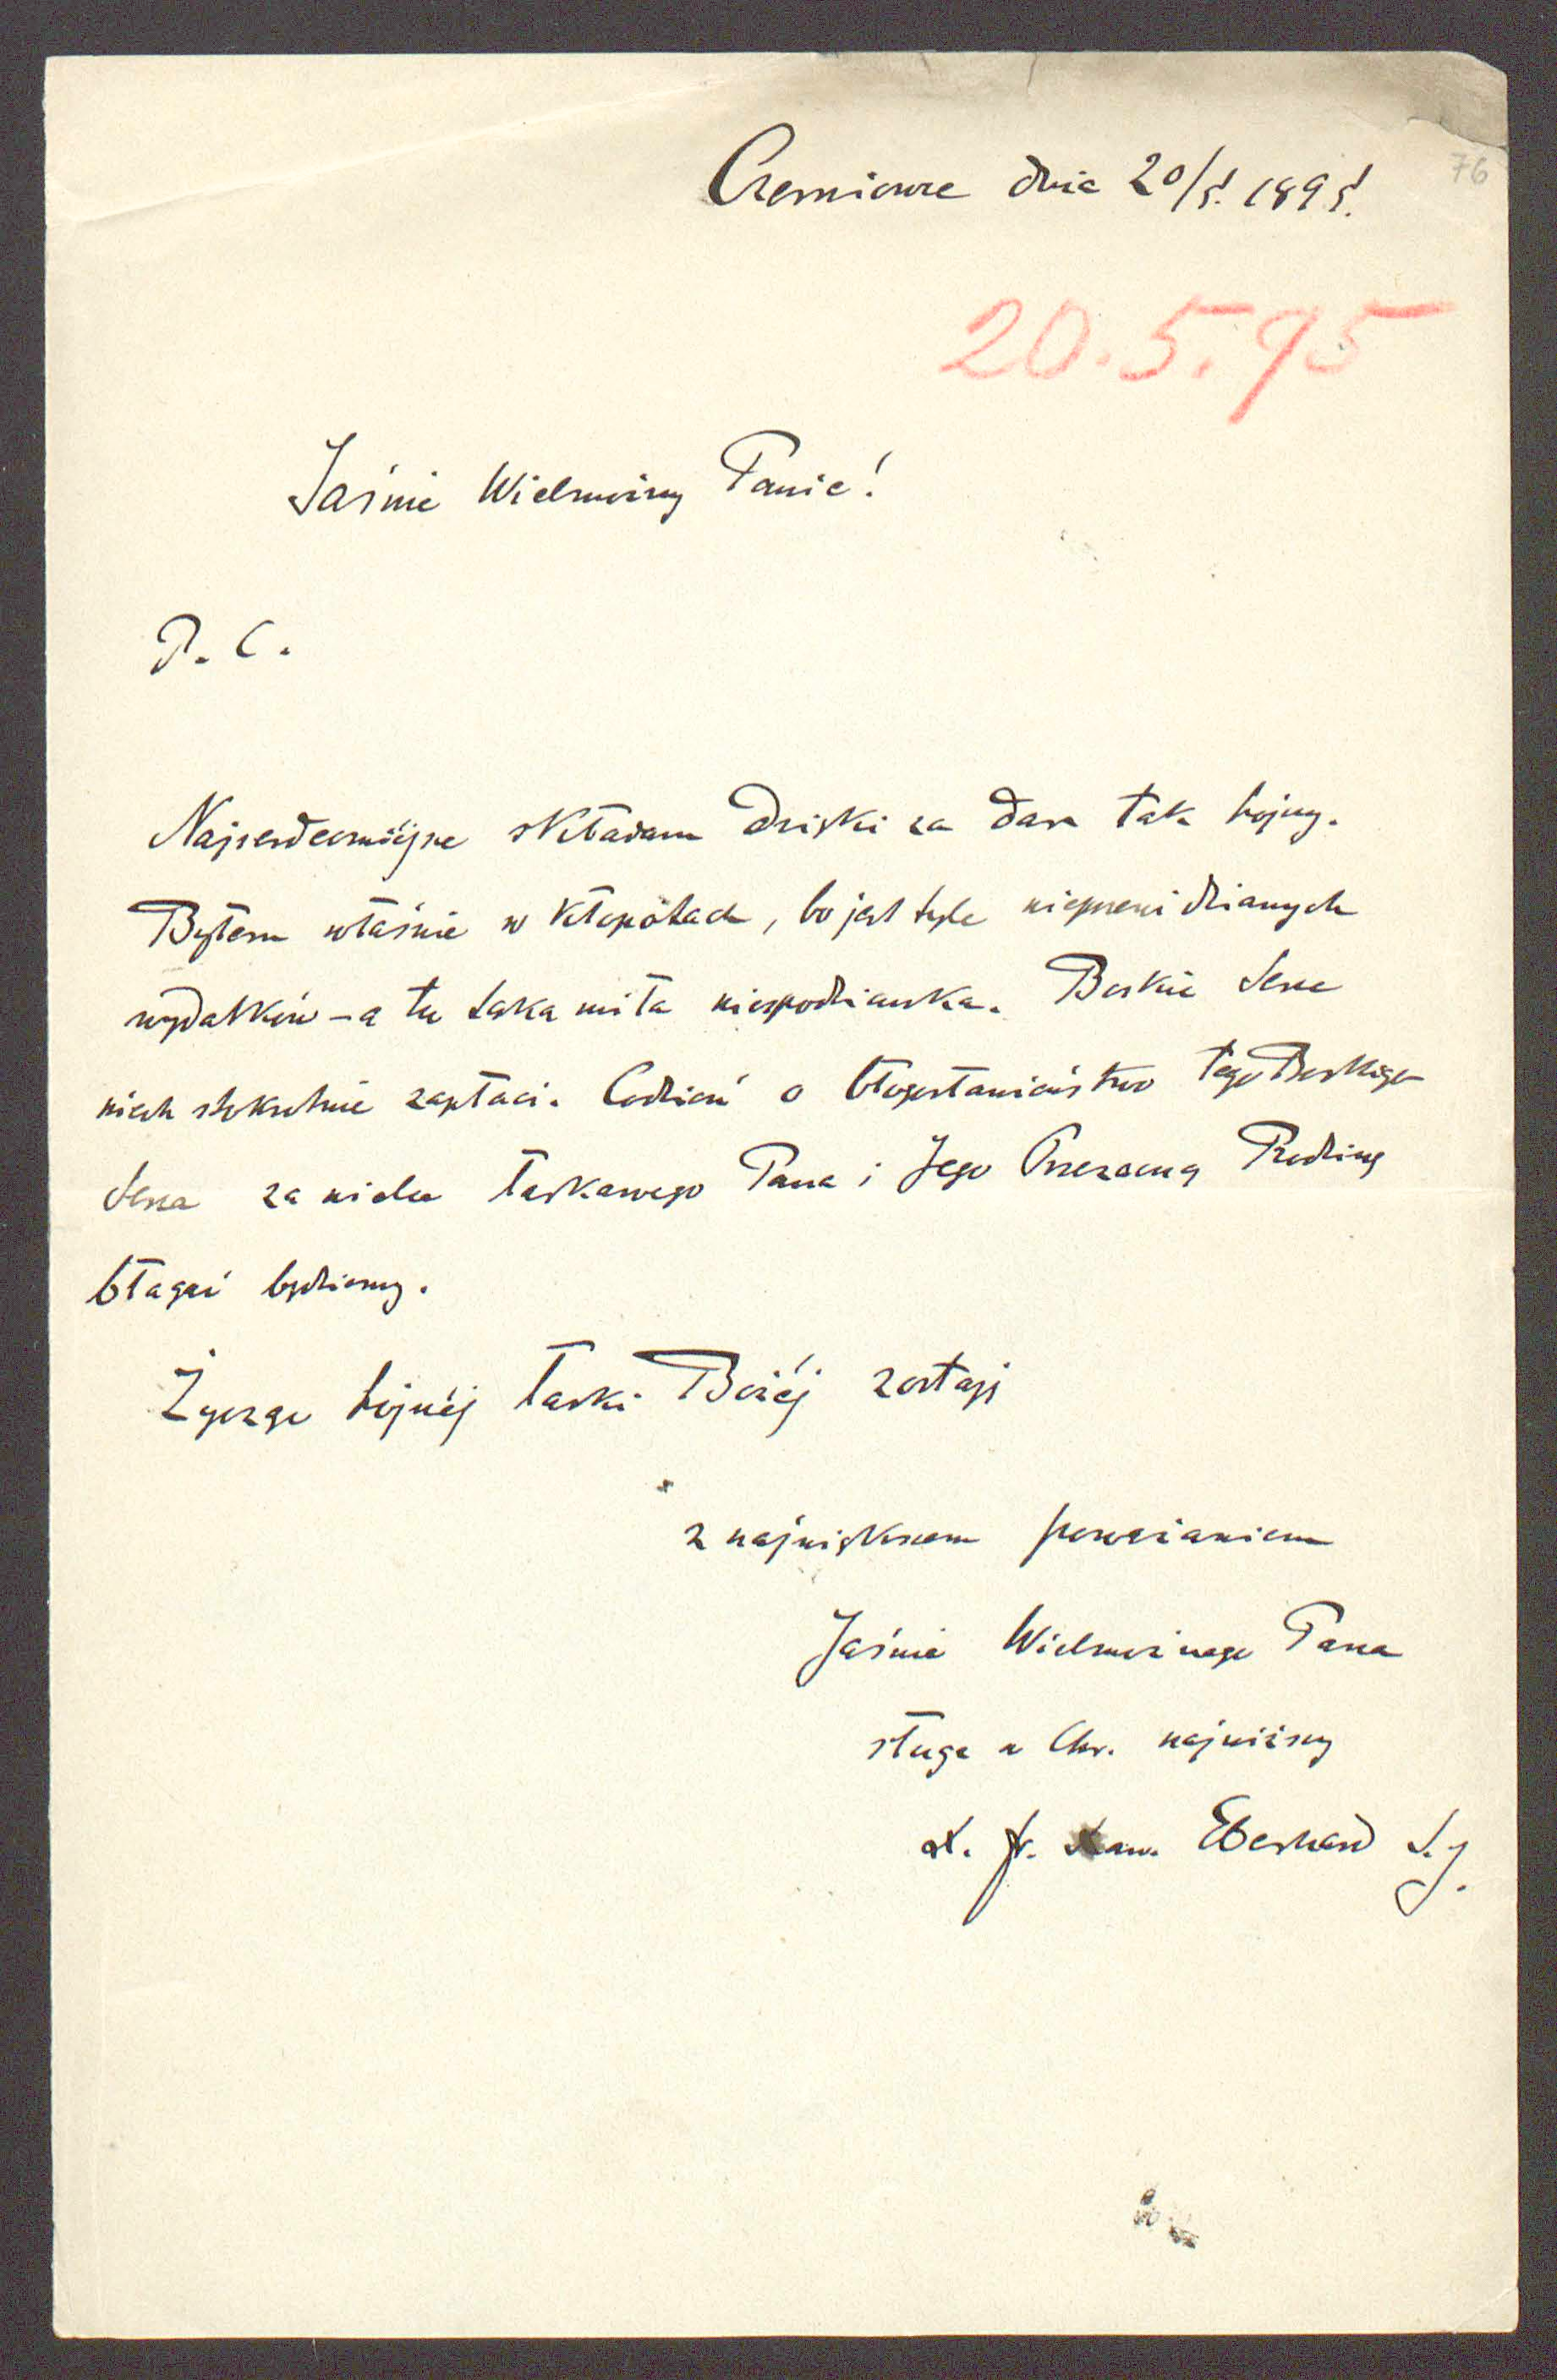 Czerniowce dnia 20/5. 1895.
76
20.5.95
Jaśnie Wielmożny Panie!
P. C.
Najserdeczniéjsze składam dzięki za dar tak hojny.
Byłem właśnie w kłopotach, bo jest tyle nieprzewidzianych
wydatków – a tu taka miła niespodzianka. Boskie Serce
niech stokrotnie zapłaci. Codzień o błogosławieństwo tego Boskiego
Serca za wielce łaskawego Pana i Jego Przezacną Rodzinę
błagać będziemy.
Życząc hojnéj łaski Bożéj zostaję
z największem poważaniem
Jaśnie Wielmożnego Pana
sługa w Chr. najniższy
X. Fr. Xaw. Eberhard S.J.